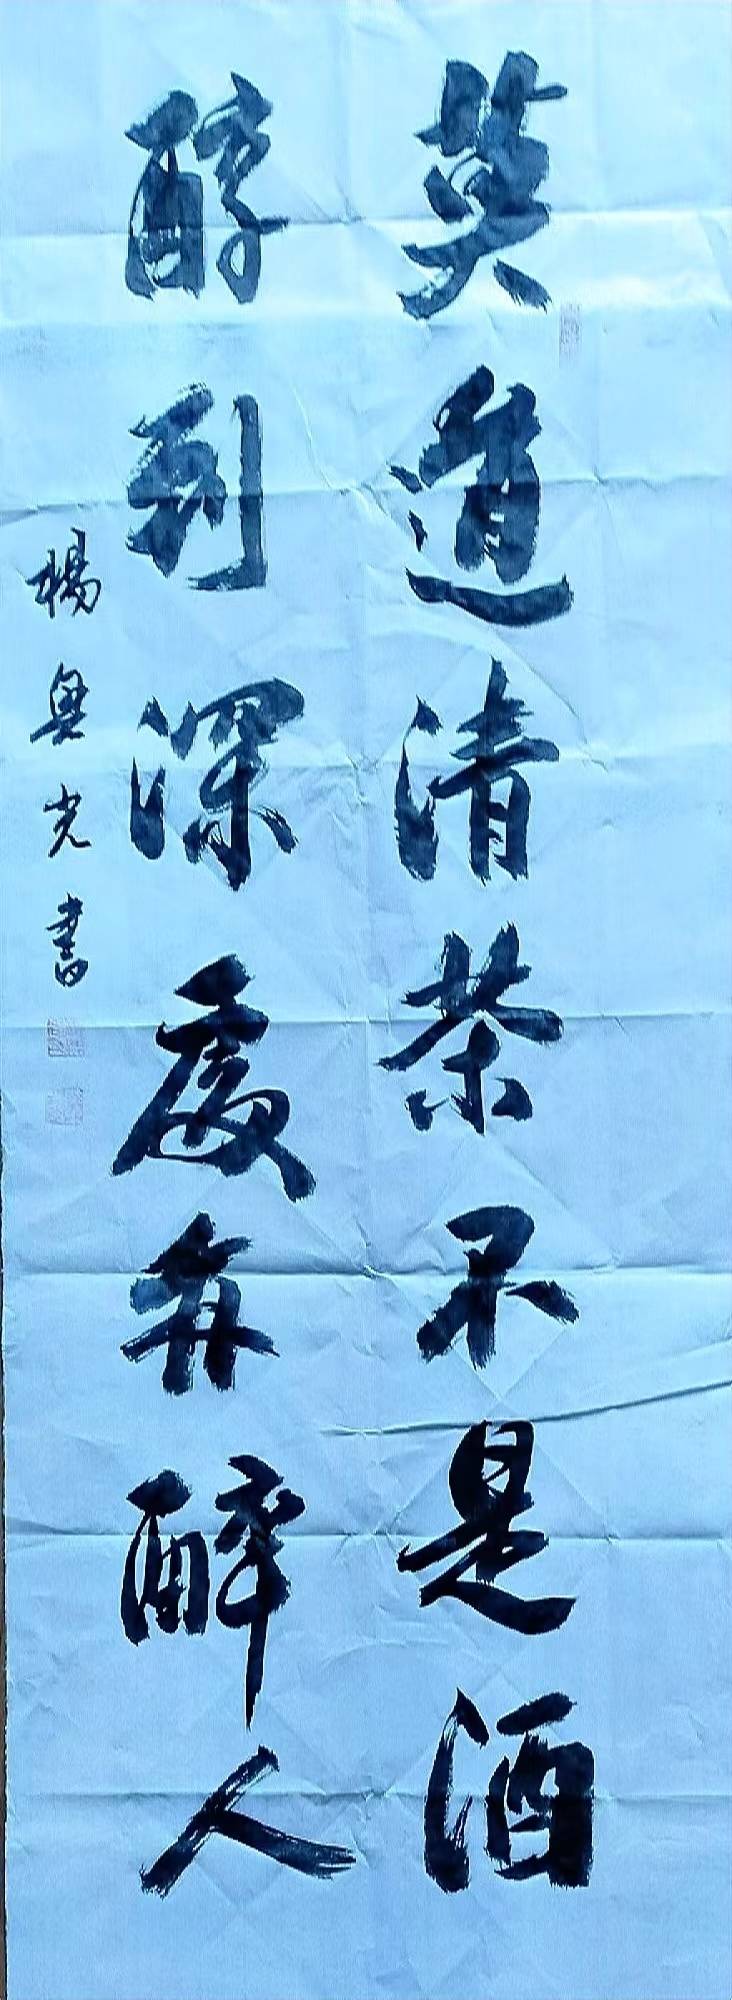 莫道清茶不是酒
醇到深處亦醉人
楊魯光書